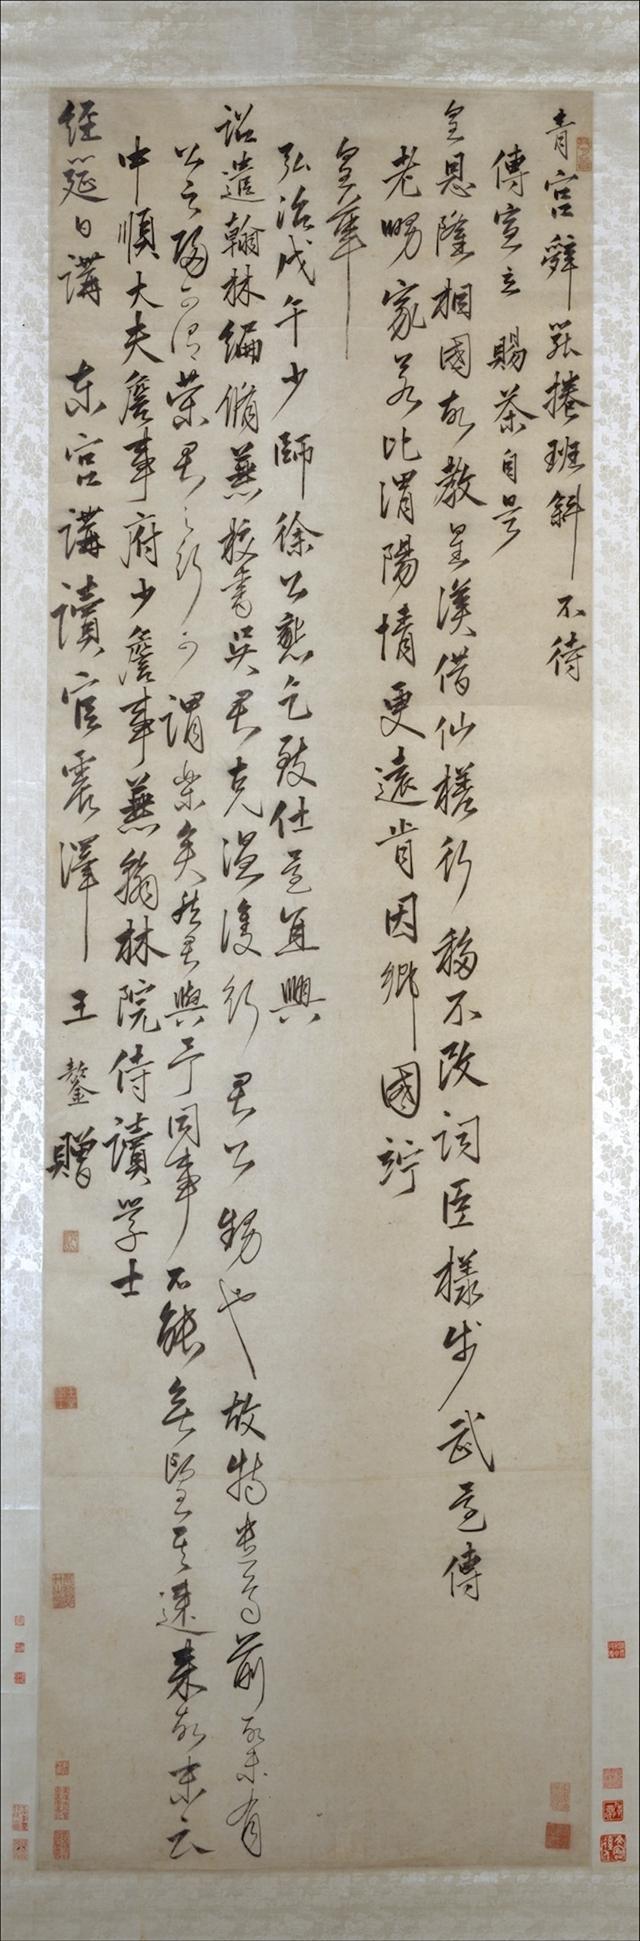 青宮辭罷捲班斜不待
傳宣立賜茶自是
皇恩隆相國故教星漢借仙槎行移不改詞臣樣步武還傳
老舅家若比渭陽情更遠肯因鄉國誇
皇華
弘治戊午少師徐公懇乞致仕還宜興
詔遣翰林編脩兼校書吳君克溫護行君公甥也故特遣焉前此未有
公之歸可謂榮君之行可謂樂矣然君與予同事不能無望其速來故末云
中順大夫詹事府少詹事兼翰林院侍讀學士
經筵日講東宮講讀官震澤王鏊贈